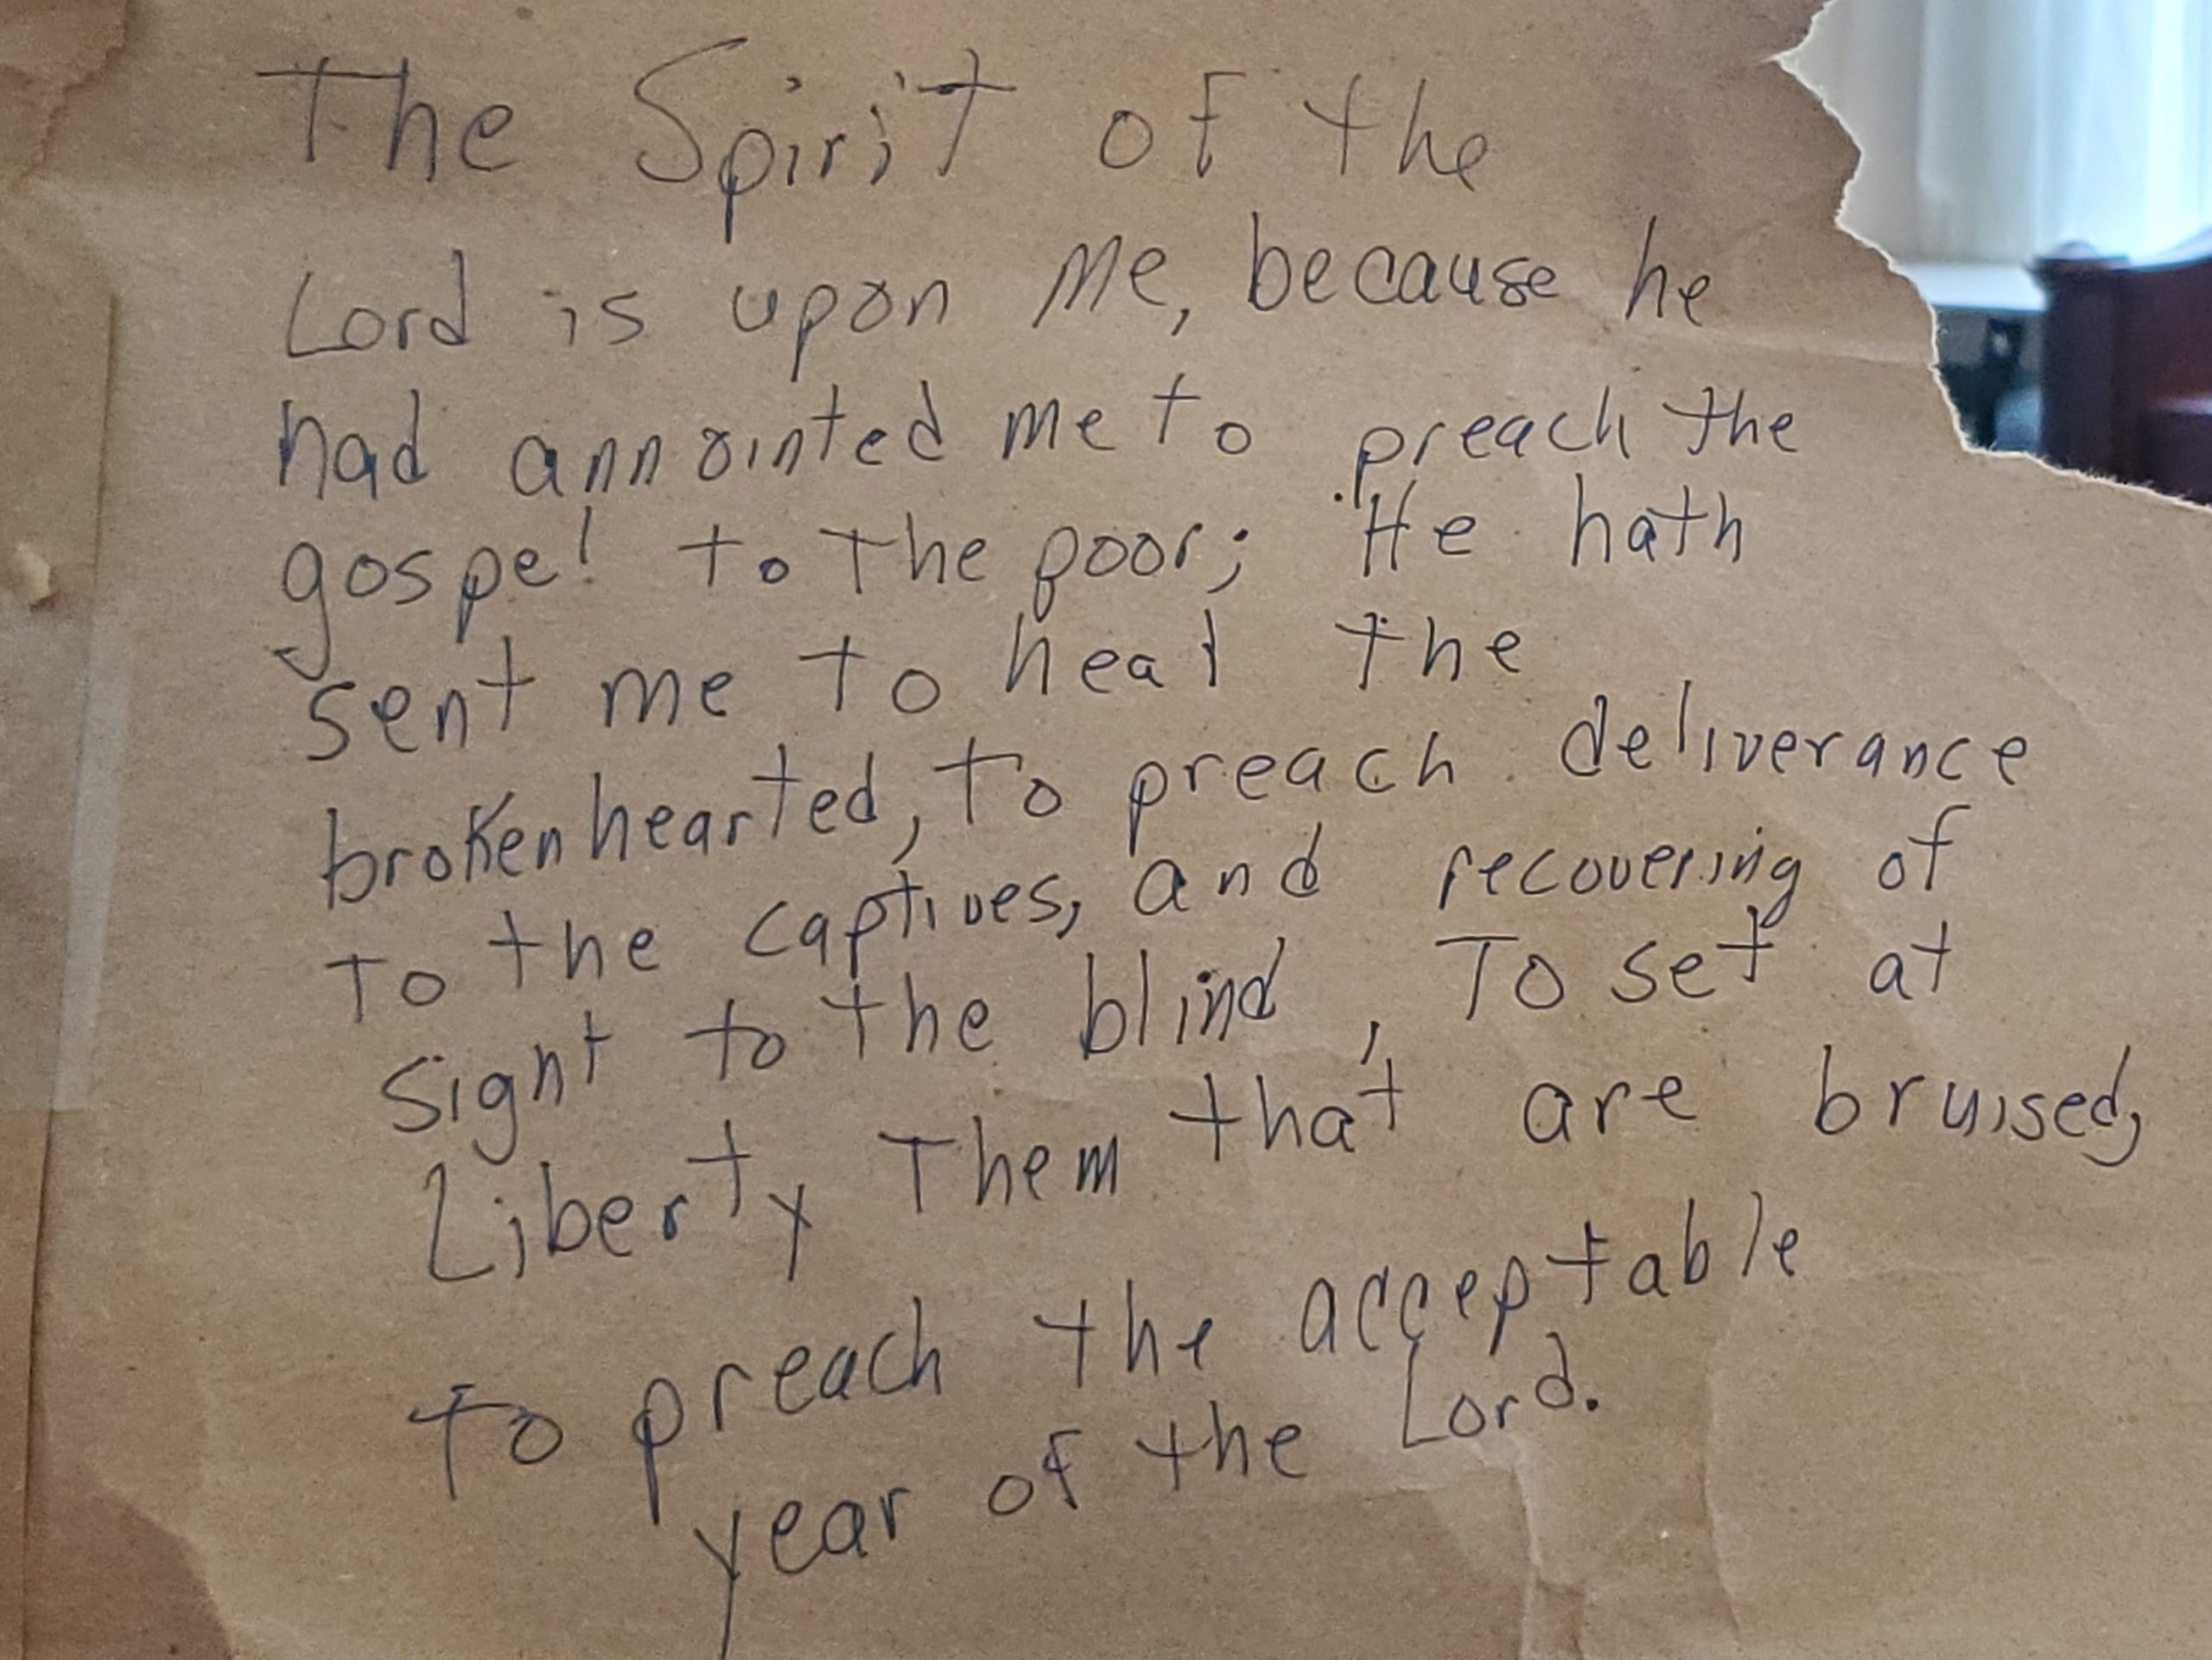 The Spirit of the
Lord is upon Me, because he
had annointed me to preach the
gospel to the poor; He hath
sent me to heal the
brokenhearted, to preach deliverance
To the captives, and recovering of
Sight to the blind, To set at
Liberty Them that are bruised,
To preach the acceptable
year of the Lord.